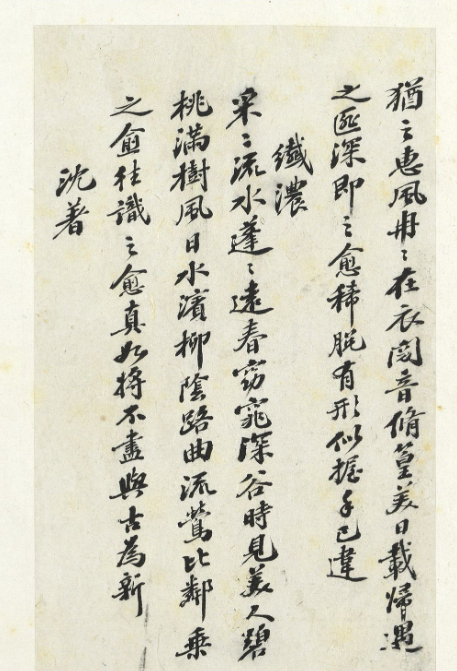 猶之惠風冉〻在衣閱音脩篁美曰載歸遇
之匪深即之愈稀脫有形似握手已違
纖濃
采〻流水蓬〻遠春窈窕深谷時見美人碧
桃滿樹風日水濱柳陰路曲流鶯比鄰乘
之愈往識之愈真如將不盡與古為新
沈著